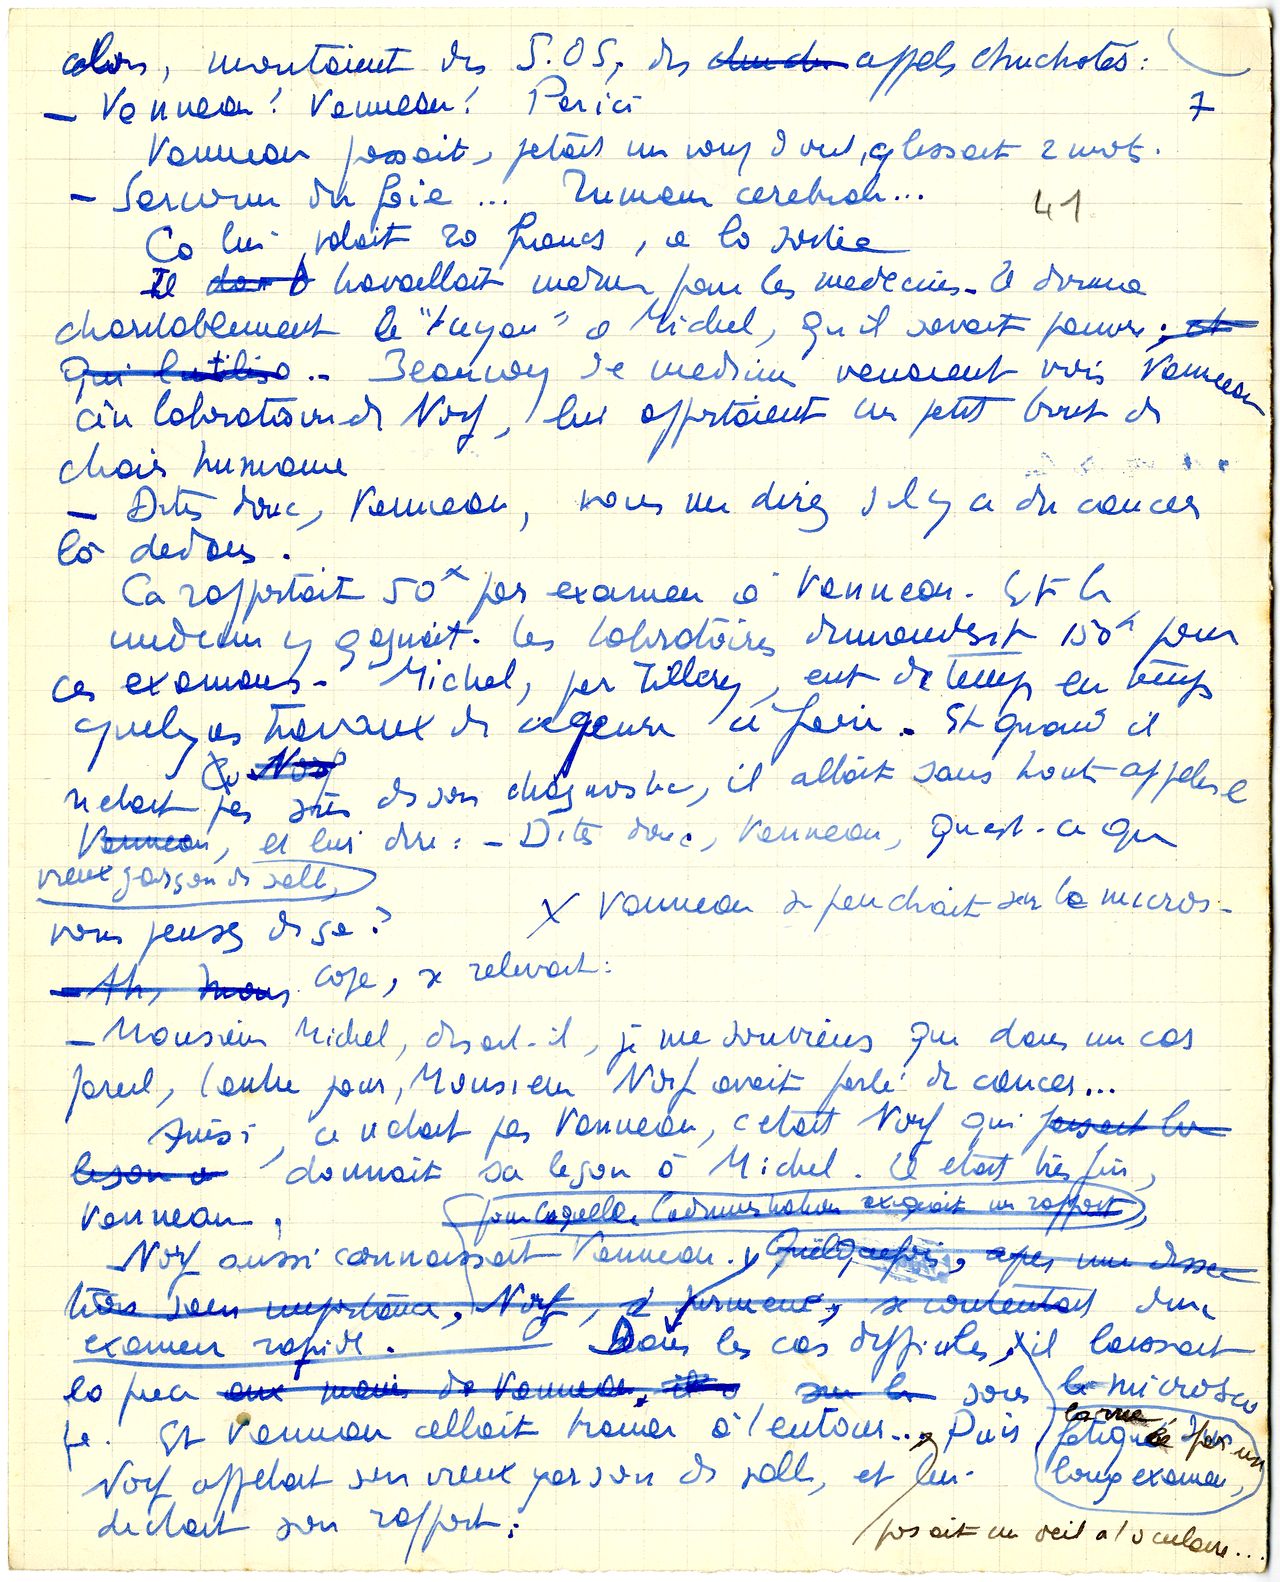 alors, montaient des S.OS, des appels chuchotés :
7
— Vanneau ! Vanneau ! Par ici
Vanneau passait, jetait un coup d'oeil, glissait 2 mots.
— Sarcome du foie ... Tumeur cerebrale...
41
Ca lui valait 20 francs, a la sortie
Il travaillait meme pour les medecins. Il donna
charitablement le "tuyau" a Michel, qu'il savait pauvre ; et
qui l'utilisa .. Beaucoup de medecins venaient voir Vanneau
au laboratoire de Norf, lui apportaient un petit bout de
chair humaine
— Dites donc, Vanneau, vous me direz s'il y a du cancer
là dedans.
Ca rapportait 50 par examen à Vanneau. Et le
medecin y gagnait. Les laboratoires demandaient 150 pour
ces examens. Michel, par Tillery, eut de temps en temps
quelques travaux de ce genre à faire. Et quand il
Norf
n'etait pas sûr de son diagnostic, il allait sans honte appeler le
Vanneau, et lui dire : — Dites donc, Vanneau, qu'est-ce que
vieux garçon de salle,
x Vanneau se penchait sur le micros-
vous pensez de ça ?
— Ah, cope, se relevait :
— Monsieur Michel, disait-il, je me souviens que dans un cas
pareil, l'autre jour, Monsieur Norf avait parlé de cancer...
Ainsi, ce n'etait pas Vanneau, c'etait Norf qui faisait la
leçon a donnait sa leçon à Michel. Il etait très fin,
Vanneau.
pour laquelle l'administration exigeait un rapport,
Norf aussi connaissait Vanneau. Quelquefois, apres une dissec
tion sans importance, Norf, se contentait d'un
examen rapide. Dans les cas difficiles, il laissait
la piece aux mains de Vanneau, sur le sous le microsco
pe. Et Vanneau allait tramer à l'entour... Puis
fatigué par un
long examen,
Norf appelait son vieux garçon de salle, et lui
dictait son rapport :
posait un oeil a l'oculaire...